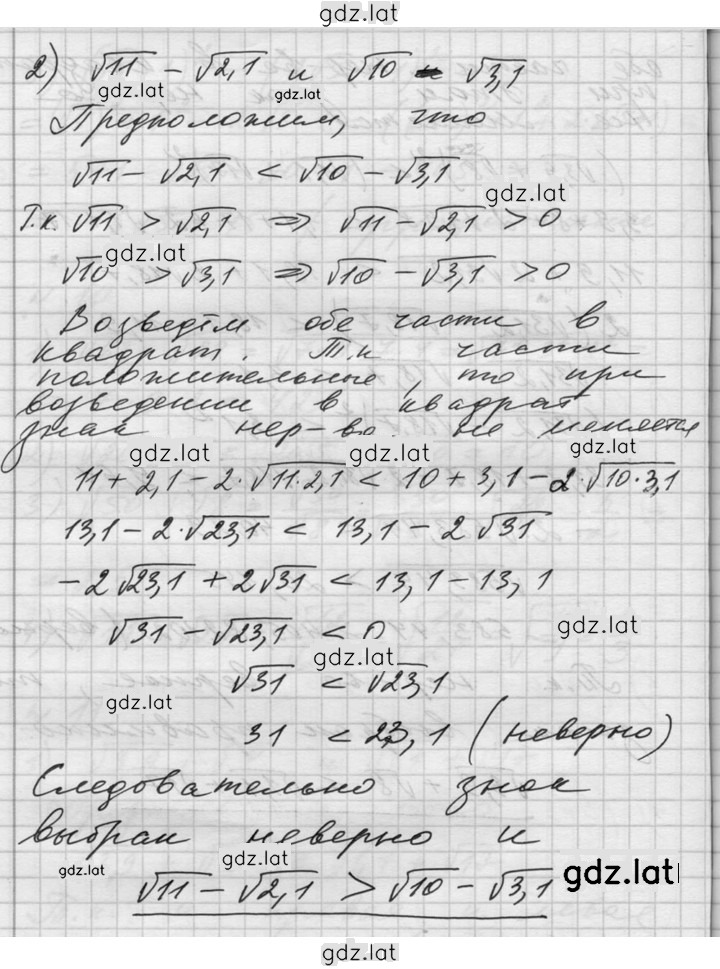 gdz.lat
2) √11 − √2,1 и √10 − √3,1
gdz.lat gdz.lat
Предположим, что
√11 − √2,1 < √10 − √3,1
gdz.lat
Т.к. √11 > √2,1 ⇒ √11 − √2,1 > 0
gdz.lat
√10 > √3,1 ⇒ √10 − √3,1 > 0
Возведём обе части в
квадрат. Т.к части
положительные, то при
возведении в квадрат
знак нер-ва не меняется
gdz.lat gdz.lat gdz.lat
11 + 2,1 − 2·√11·2,1 < 10 + 3,1 − 2·√10·3,1
13,1 − 2·√23,1 < 13,1 − 2√31
−2√23,1 + 2√31 < 13,1 − 13,1
√31 − √23,1 < 0
gdz.lat
gdz.lat
√31 < √23,1
gdz.lat
31 < 23,1 (неверно)
Следовательно знак
выбран неверно и
gdz.lat gdz.lat
√11 − √2,1 > √10 − √3,1
gdz.lat
gdz.lat